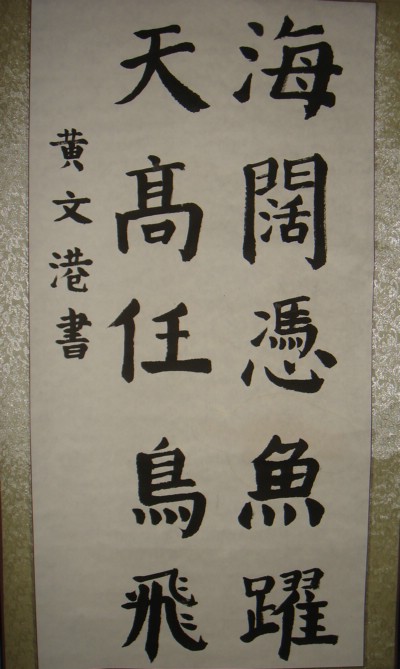 海闊憑魚躍
天髙任鳥飛
黄文港書